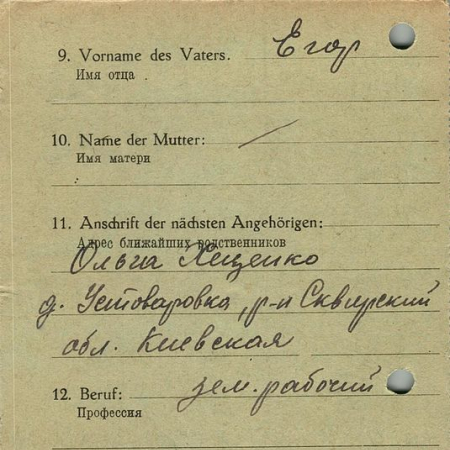 9. Vorname des Vaters. Егор
Имя отца .
10. Name der Mutter: —
Имя матери
11. Anschrift der nächsten Angehörigen:
Адрес ближайших родственников
Ольга Хеценко
д. Устоваровка, р-н Сквирский
обл. Киевская
12. Beruf: зем. рабочий
Профессия